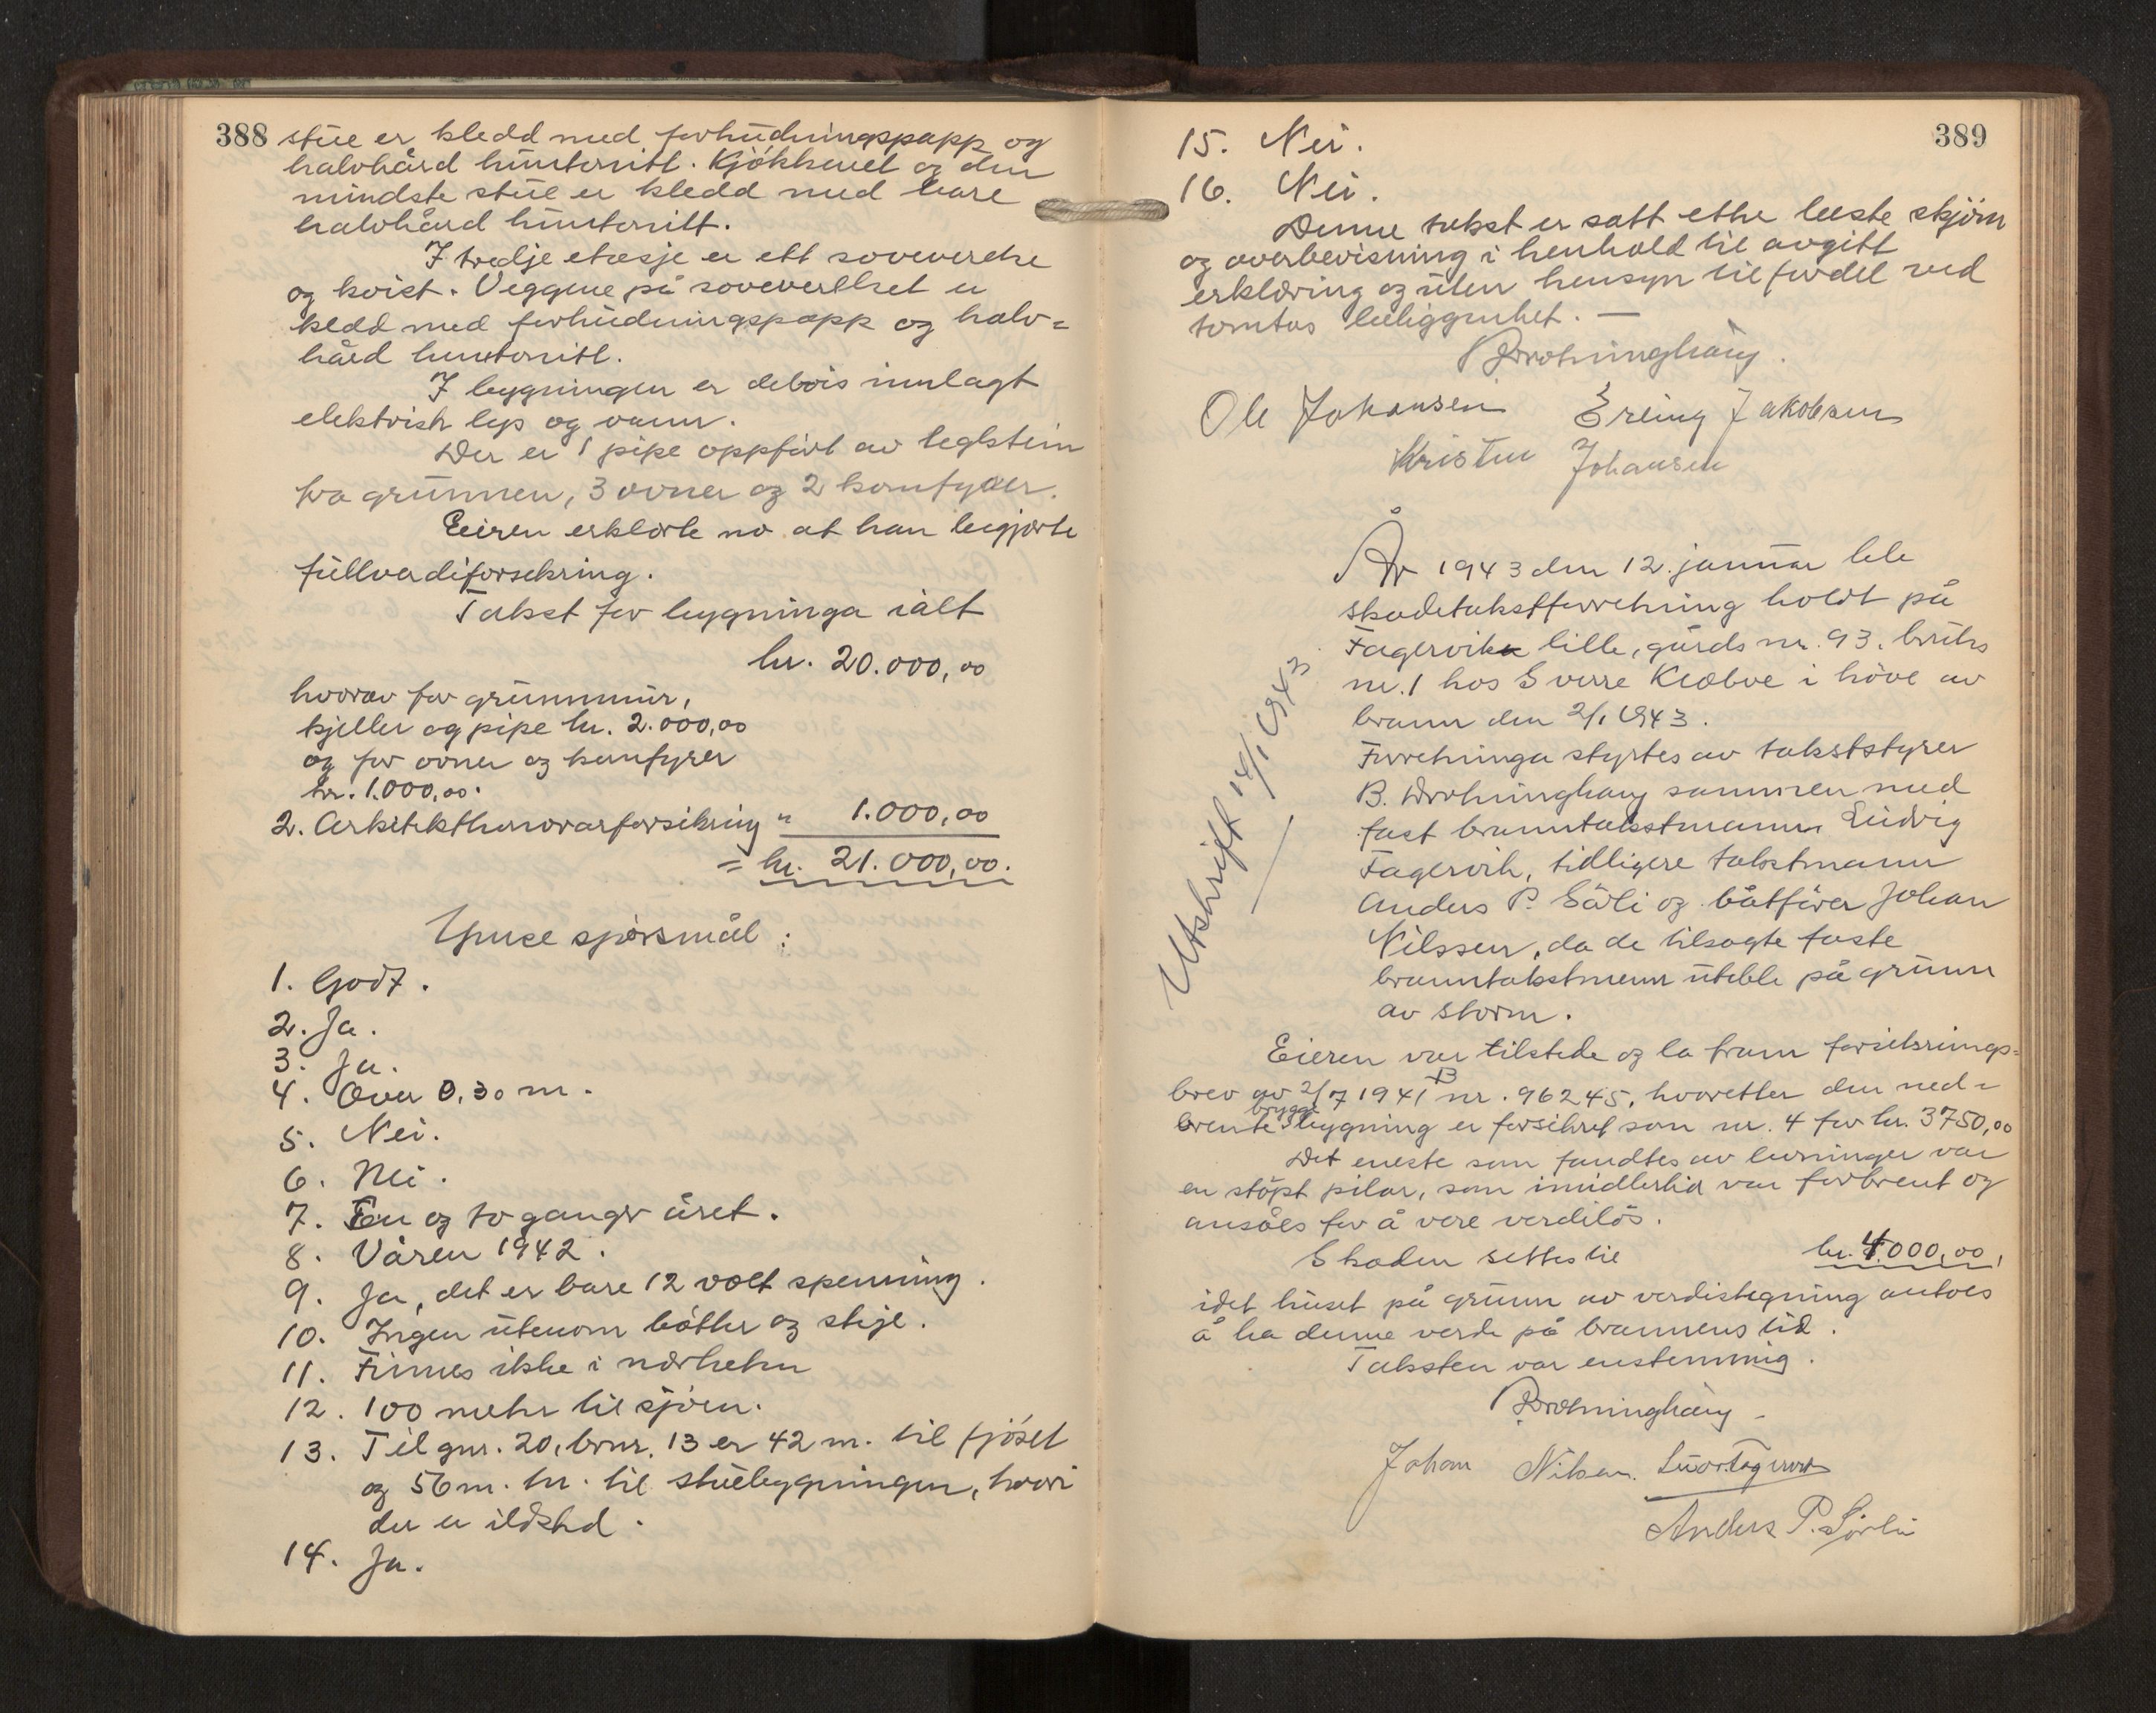 388
stue er kledd med forhudningspapp og
halvhård huntonitt. Kjøkkenet og den
mindste stue er kledd med bare
halvhård huntonitt.
I tredje etasje er ett soveverelse
og kvist. Veggene på soveverelset er
kledd med forhudningspapp og halv=
hård huntonitt.
I bygningen er delvis innlagt
elektrisk lys og vann.
Der er 1 pipe oppført av teglstein
fra grunnen, 3 ovner og 2 komfyrer.
Eieren erklærte no at han begjærte
fullverdiforsekring.
Takst for bygninga ialt
kr. 20.000,00
hvorav for grunnmur,
kjeller og pipe kr. 2.000,00
og for ovner og komfyrer
kr. 1.000,00.
2. Arkitekthonorarforsikring " 1.000,00
= kr. 21.000,00.
Ymse spørsmål:
1. Godt.
2. Ja.
3. Ja.
4. Over 0,30 m.
5. Nei.
6. Nei.
7. En og to ganger året.
8. Våren 1942.
9. Ja, det er bare 12 volt spenning.
10. Ingen utenom bøtter og stige.
11. Finnes ikke i nærheten
12. 100 meter til sjøen.
13. Til gnr. 20, brnr. 13 er 42 m. til fjøset
og 56 m. til stuebygningen, hvori
der er ildsted.
14. Ja.
389
15. Nei.
16. Nei.
Denne takst er satt etter beste skjønn
og overbevisning i henhold til avgitt
erklæring og uten hensyn til fordel ved
tomtas beliggenhet. —
BDrotninghaug.
Ole Johansen Erling Jakobsen
Kristen Johansen
År 1943 den 12. januar ble
skadetakstforretning holdt på
Fagervik lille, gårds nr. 93, bruks
nr. 1 hos Sverre Kvæbve i høve av
brann den 2/1 1943.
Forretninga styrtes av takststyrer
B. Drotninghaug sammen med
fast branntakstmann Ludvig
Fagervik, tidligere takstmann
Anders P. Sørli og båtfører Johan
Nilssen, da de tilsagte faste
branntakstmenn uteble på grunn
av storm.
Utskrift 14/1 1943
Eieren var tilstede og la fram forsikrings=
brev av 2/7 1941 B nr. 96245, hvoretter den ned=
brente brygge bygning er forsikret som nr. 4 for kr. 3750,00
Det eneste som fandtes av levninger var
en støpt pilar, som imidlertid var forbrent og
ansåes for å vere verdiløs.
Skaden settes til kr. 4.000,00,
idet huset på grunn av verdistegning antoes
å ha denne verdi på brannens tid.
Taksten var enstemmig.
BDrotninghaug
Johan Nilsen. Ludv. Fagervik
Anders P. Sørli